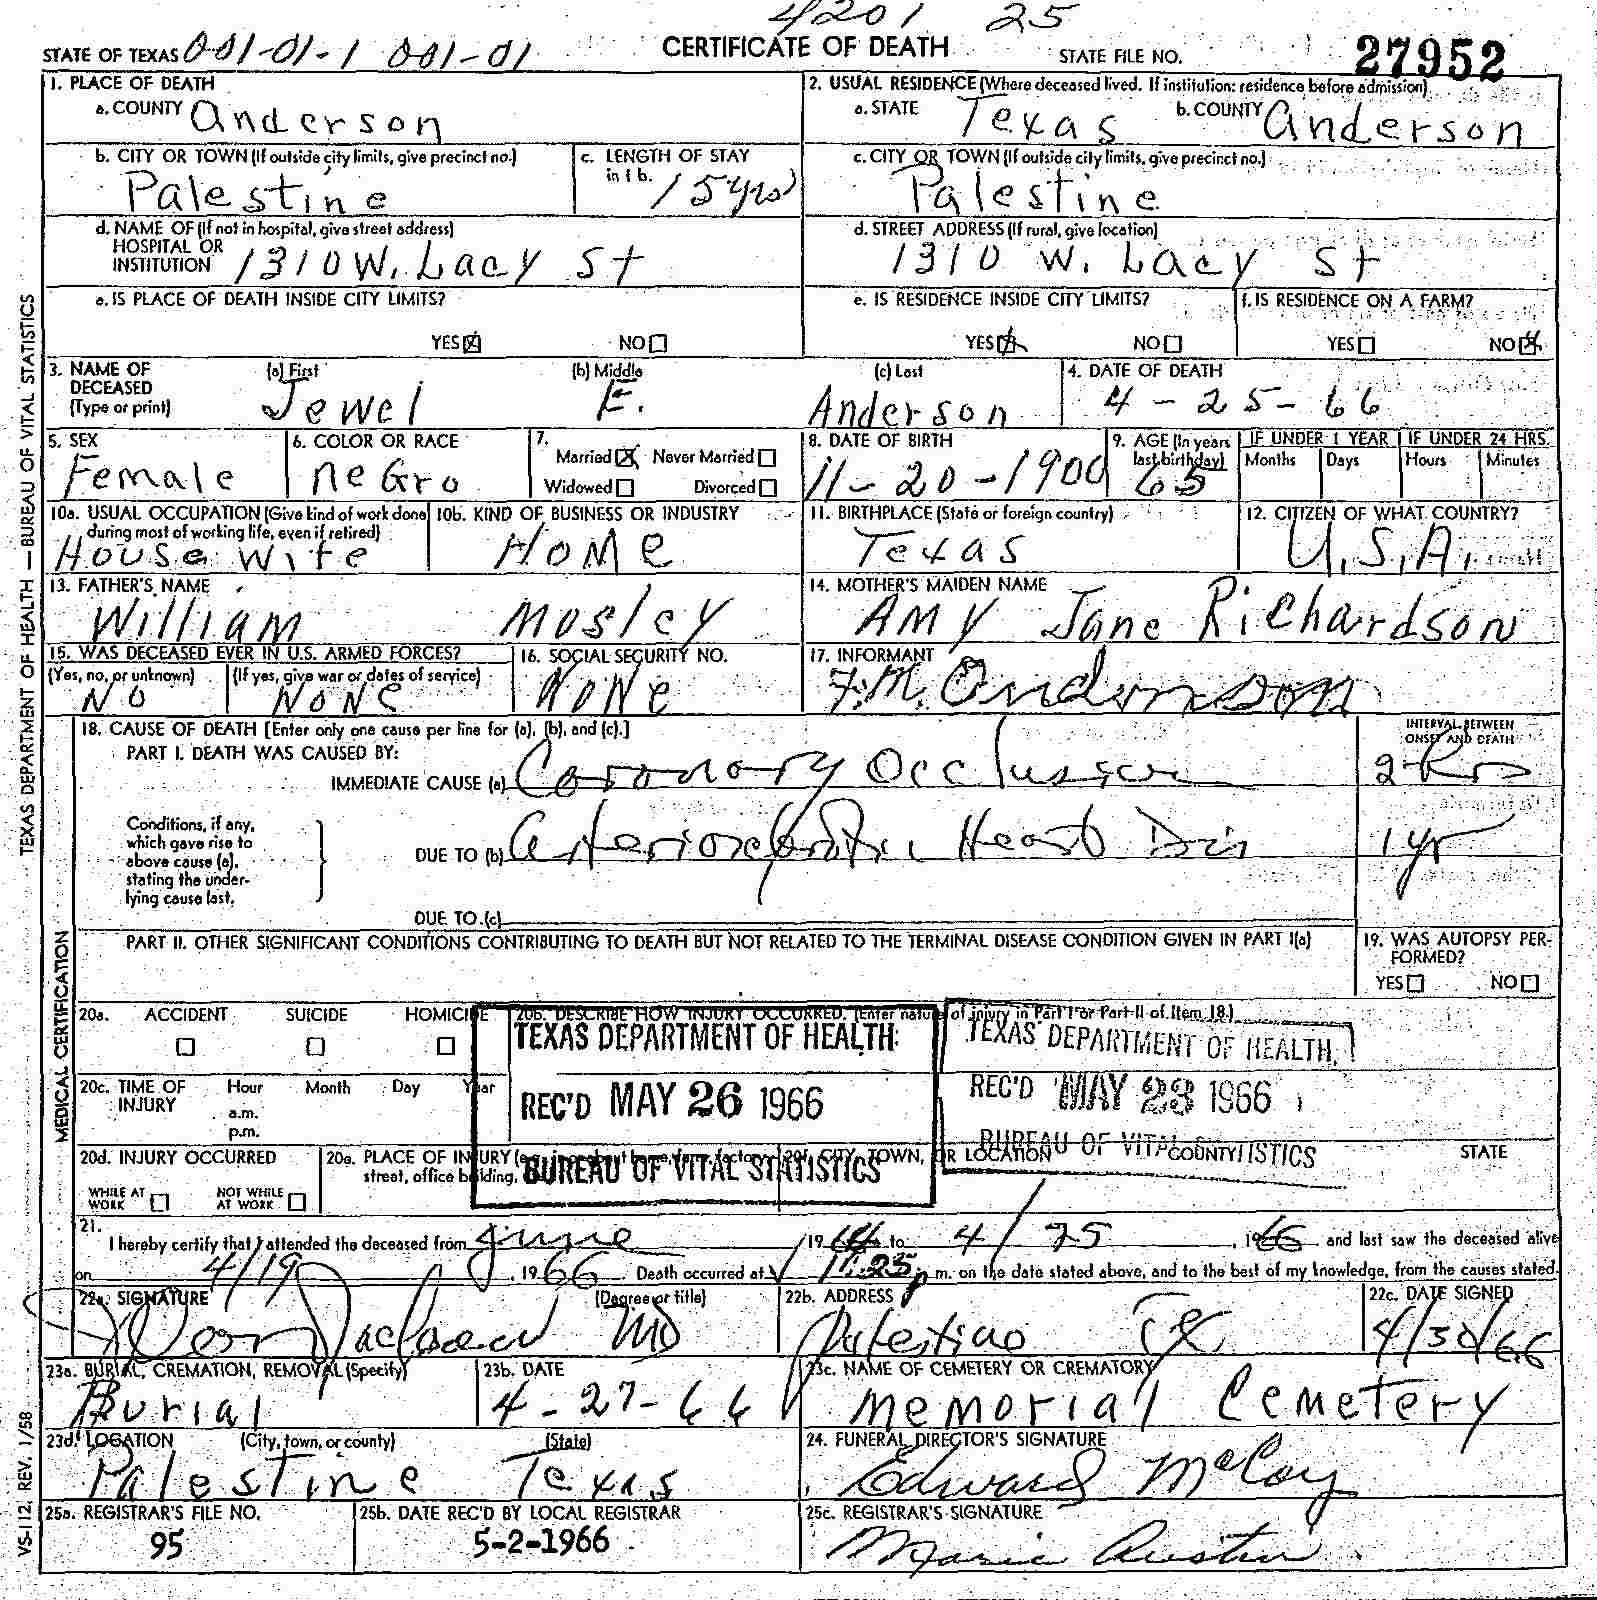 4201 25
STATE OF TEXAS 001-01-1 001-01 CERTIFICATE OF DEATH STATE FILE NO. 27952
1. PLACE OF DEATH
a. COUNTY Anderson
2. USUAL RESIDENCE (Where deceased lived. If institution: residence before admission)
a. STATE Texas b. COUNTY Anderson
b. CITY OR TOWN (If outside city limits, give precinct no.) Palestine
c. LENGTH OF STAY in 1 b. 15 yrs
c. CITY OR TOWN (If outside city limits, give precinct no.) Palestine
d. NAME OF (If not in hospital, give street address) HOSPITAL OR INSTITUTION 1310 W. Lacy St
d. STREET ADDRESS (If rural, give location) 1310 W. Lacy St
e. IS PLACE OF DEATH INSIDE CITY LIMITS? YES NO
e. IS RESIDENCE INSIDE CITY LIMITS? YES NO
f. IS RESIDENCE ON A FARM? YES NO
3. NAME OF DECEASED (Type or print) (a) First Jewel (b) Middle E. (c) Last Anderson
4. DATE OF DEATH 4-25-66
5. SEX Female
6. COLOR OR RACE Negro
7. Married Never Married Widowed Divorced
8. DATE OF BIRTH 11-20-1900
9. AGE (In years last birthday) 65
IF UNDER 1 YEAR Months Days
IF UNDER 24 HRS. Hours Minutes
10a. USUAL OCCUPATION (Give kind of work done during most of working life, even if retired) House wife
10b. KIND OF BUSINESS OR INDUSTRY Home
11. BIRTHPLACE (State or foreign country) Texas
12. CITIZEN OF WHAT COUNTRY? U.S.A.
13. FATHER'S NAME William Mosley
14. MOTHER'S MAIDEN NAME Amy Jane Richardson
15. WAS DECEASED EVER IN U.S. ARMED FORCES? (Yes, no, or unknown) No (If yes, give war or dates of service) None
16. SOCIAL SECURITY NO. None
17. INFORMANT F.M. Anderson
18. CAUSE OF DEATH [Enter only one cause per line for (a), (b), and (c).]
INTERVAL BETWEEN ONSET AND DEATH
PART I. DEATH WAS CAUSED BY:
IMMEDIATE CAUSE (a) Coronary Occlusion
Conditions, if any, which gave rise to above cause (a), stating the underlying cause last.
DUE TO (b) Arteriosclerotic Heart Dis 1 yr
DUE TO (c)
PART II. OTHER SIGNIFICANT CONDITIONS CONTRIBUTING TO DEATH BUT NOT RELATED TO THE TERMINAL DISEASE CONDITION GIVEN IN PART I(a)
19. WAS AUTOPSY PERFORMED? YES NO
20a. ACCIDENT SUICIDE HOMICIDE
20b. DESCRIBE HOW INJURY OCCURRED. (Enter nature of injury in Part I or Part II of Item 18.)
TEXAS DEPARTMENT OF HEALTH
REC'D MAY 26 1966
BUREAU OF VITAL STATISTICS
TEXAS DEPARTMENT OF HEALTH
REC'D MAY 23 1966
BUREAU OF VITAL STATISTICS
20c. TIME OF INJURY Hour Month Day Year
a.m.
p.m.
20d. INJURY OCCURRED
WHILE AT WORK NOT WHILE AT WORK
20e. PLACE OF INJURY (e.g., in or about home, farm, factory, street, office building,
20f. CITY, TOWN, OR LOCATION COUNTY STATE
21. I hereby certify that I attended the deceased from June 19 to 4/25, 1966 and last saw the deceased alive
on 4/19, 1966. Death occurred at 11:25 p m. on the date stated above, and to the best of my knowledge, from the causes stated.
22a. SIGNATURE (Degree or title) MD
22b. ADDRESS Palestine Tx
22c. DATE SIGNED 4/30/66
23a. BURIAL, CREMATION, REMOVAL (Specify) Burial
23b. DATE 4-27-66
23c. NAME OF CEMETERY OR CREMATORY Memorial Cemetery
23d. LOCATION (City, town, or county) (State) Palestine Texas
24. FUNERAL DIRECTOR'S SIGNATURE Edward McCoy
25a. REGISTRAR'S FILE NO. 95
25b. DATE REC'D BY LOCAL REGISTRAR 5-2-1966
25c. REGISTRAR'S SIGNATURE Marie Austin
TEXAS DEPARTMENT OF HEALTH — BUREAU OF VITAL STATISTICS
MEDICAL CERTIFICATION
VS-112, REV. 1/58